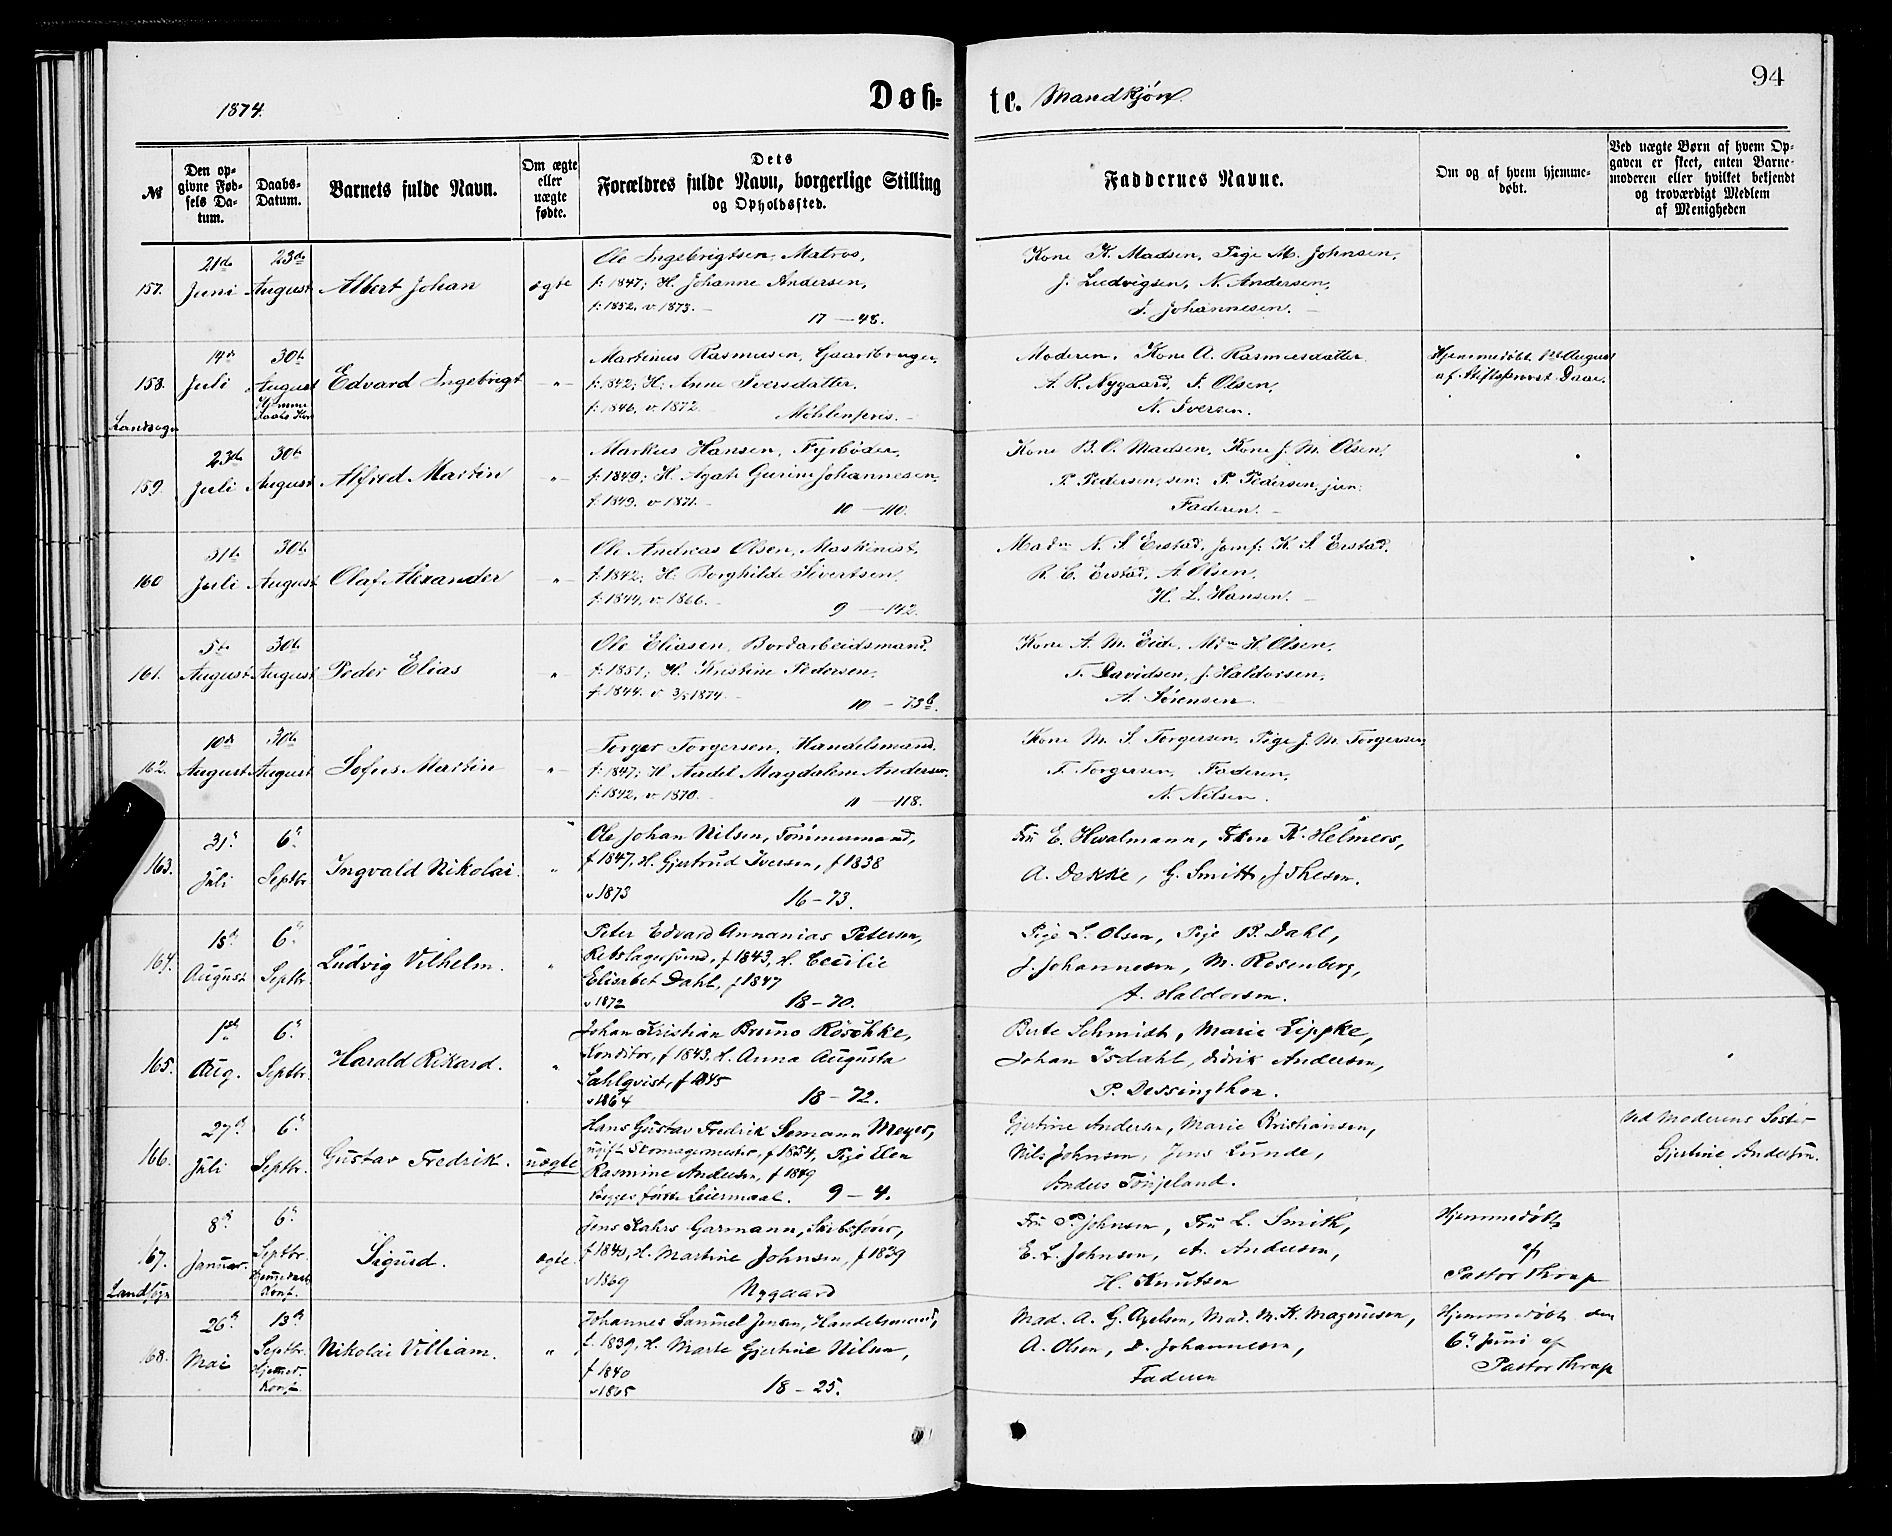 94
1874.
Døb-
te. Mandkjøn.
№
Den op-
givne Fød-
sels Da-
tum.
Daabs-
Datum.
Barnets fulde Navn.
Om ægte
eller
uægte
fødte.
Dets
Forældres fulde Navn, borgerlige Stilling
og Opholdssted.
Faddernes Navne.
Om og af hvem hjemme-
døbt.
Ved uægte Børn af hvem Op-
gaven er skeet, enten Barne-
moderen eller hvilket bekjendt
og troværdigt Medlem
af Menigheden
157.
21de
Juni
23de
August
Albert Johan
ægte
Ole Ingebrigtsen, Matros,
f: 1847; H. Johanne Andersen,
f: 1852. v. 1873.
17 — 48.
Kone K. Madsen, Pige M. Johnsen,
J. Ludvigsen, N. Andersen,
J. Johannesen.
158.
Landsogn
14de
Juli
30te
August
Hjemme
daabs Konf
Edvard Ingebrigt
-"-
Martinus Rasmusen, Gaardbruger,
f: 1842; H: Anne Iversdatter,
f: 1846, v. 1872.
Møhlenpris.
Moderen, Kone A. Rasmusdatter
A. R. Nygaard, I. Olsen,
N. Iversen.
Hjemmedøbt 1ste August
af Stiftsprovst Daae.
159.
23de
Juli
30te
August
Alfred Martin
-"-
Markus Hansen, Fyrbøder,
f: 1849; H. Agate Gurine Johannesen,
f: 1849. v. 1871.
10 — 110.
Kone B. O. Madsen, Kone J. M. Olsen,
P. Pedersen, sen: P. Pedersen, jun:
Faderen.
160
31te
Juli
30te
August
Olaf Alexander
-"-
Ole Andreas Olsen, Maskinist,
f: 1842; H: Borghilde Sivertsen,
f: 1844, v. 1866.
9 — 142.
Madm N. S. Erstad, Jomf: K. S. Erstad,
R. E. Erstad, A. Olsen,
H. L. Hansen.
161.
5te
August
30te
August
Peder Elias
-"-
Ole Eliasen, Bordarbeidsmand,
f: 1851; H. Kristine Pedersen,
f: 1844. v. 3/5 1874.
10 — 73b.
Kone A. M. Eide, Mdm H. Olsen,
T. Davidsen, J. Haldorsen,
A. Sørensen.
162.
10de
August
30te
August
Sofus Martin
-"-
Torger Torgersen, Handelsmand,
f: 1847; H. Andel Magdalene Andersen,
f: 1842, v. 1870.
11 — 118.
Kone M. S. Torgersen, Pige J. M. Torgersen,
T. Torgersen, Faderen,
N. Nilsen.
163.
31te
Juli
6te
Septbr
Ingvald Nikolai.
"
Ole Johan Nilsen, Tømmermand,
f 1847, H. Gjertrud Iversen, f 1838
v 1873
16 - 73.
Fru E. Hvalmann, Frkn K. Helmers,
A. Dekke, G. Smitt,
164.
18de
August
6te
Septbr
Ludvig Vilhelm.
"
Peter Edvard Annanias Petersen,
Rebslagersvend, f 1843, H. Cecilie
Elisabet Dahl, f 1847
v 1872
18 - 70.
Pige L. Olsen, Pige B. Dahl,
J. Johannesen, M. Rosenberg,
A. Haldorsen.
165.
1ste
Aug.
6te
Septbr.
Harald Rikard.
"
Johan Kristian Bruno Röschke,
Konditor, f 1843. H. Anna Augusta
Sahlqvist, f 1845
v 1864
18 - 72.
Berte Schmidt, Marie Lippke,
Johan Isdahl, Didrik Andersen,
P. Dessingthon.
166.
27de
Juli
6te
Septbr.
Gustav Fredrik.
uægte
Hans Gustav Fredrik Semann Meyer,
ugift Skomagermester, f 1854, Pige Elen
Rasmine Andersen, f 1849
Begges første Leiermaal. 9 - 4.
Gjertine Andersen, Marie Kristiansen,
Nils Johnsen, Jens Lunde,
Anders Tønjeland.
Ved Moderens Søster
Gjertine Andersen.
167.
Landsogn
8de
Januar.
6te
Septbr.
Hjemmedaab
Konf.
Sigurd.
ægte.
Jens Kahrs Garmann, Skibsfører,
f 1840, H. Martine Johnsen, f 1839
v 1869
Nygaard
Fru P. Johnsen, Fru L. Smith,
E. L. Johnsen, A. Andersen,
H. Knutsen
Hjemmedøbt
af
Pastor Thrap
168.
26de
Mai
13de
Septbr.
Hjemmed.
Konf.
Nikolai Villiam.
"
Johannes Samuel Jensen, Handelsmand,
f. 1839, H. Marte Gjertine Nilsen,
f 1840
v 1865
18 - 25.
Mad. A. G. Axelsen, Mad. M. K. Magnusen,
A. Olsen, D. Johannesen,
Faderen
Hjemmedøbt den
6te Juni af
Pastor Thrap